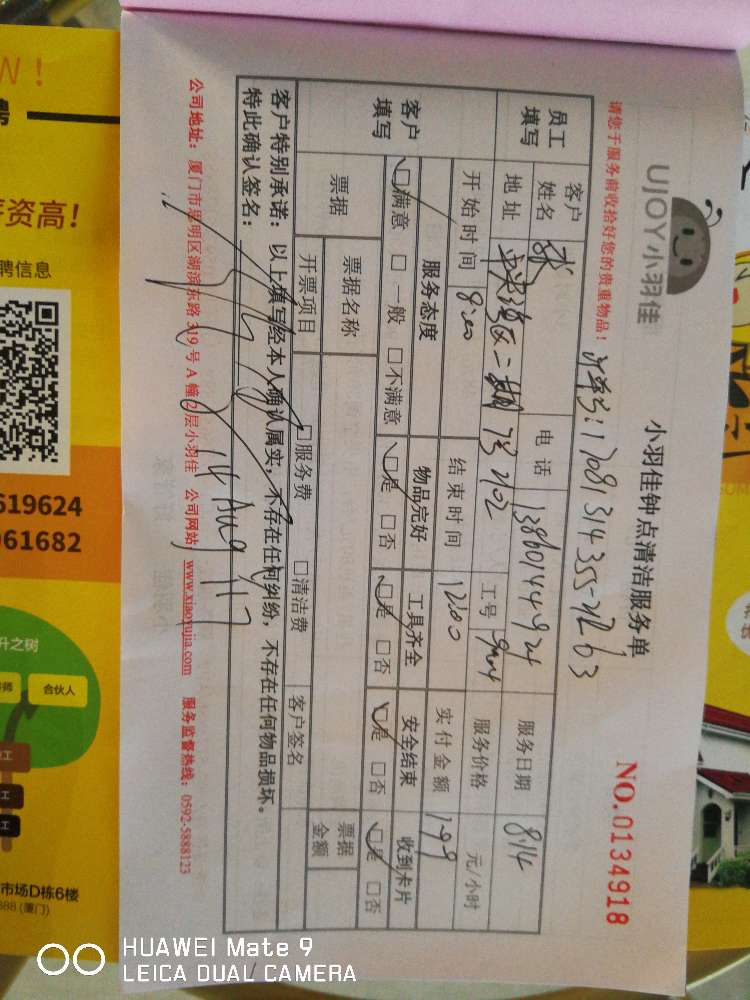 UJOY小羽佳
小羽佳钟点清洁服务单
NO.0134918
请您于服务前收拾好您的贵重物品!
员工填写
客户姓名 张
电话
服务日期 8.14
地址
工号
服务价格 元/小时
开始时间 8:00
结束时间 12:00
实付金额 199
客户填写
服务态度 物品完好 工具齐全 安全结束 收到卡片
□满意 □一般 □不满意 □是 □否 □是 □否 □是 □否 □是 □否
票据
票据名称
票据金额
开票项目 □服务费 □清洁费 客户签名
客户特别承诺:以上填写经本人确认属实,不存在任何纠纷,不存在任何物品损坏。
特此确认签名:
14 Aug '17
公司地址:厦门市思明区湖滨东路319号A幢2层小羽佳 公司网站:www.xiaoyujia.com 服务监督热线:0592-5888123
W!
聘
资高!
聘信息
619624
961682
升之树
合伙人
市场D栋6楼
888.(厦门)
HUAWEI Mate 9
LEICA DUAL CAMERA